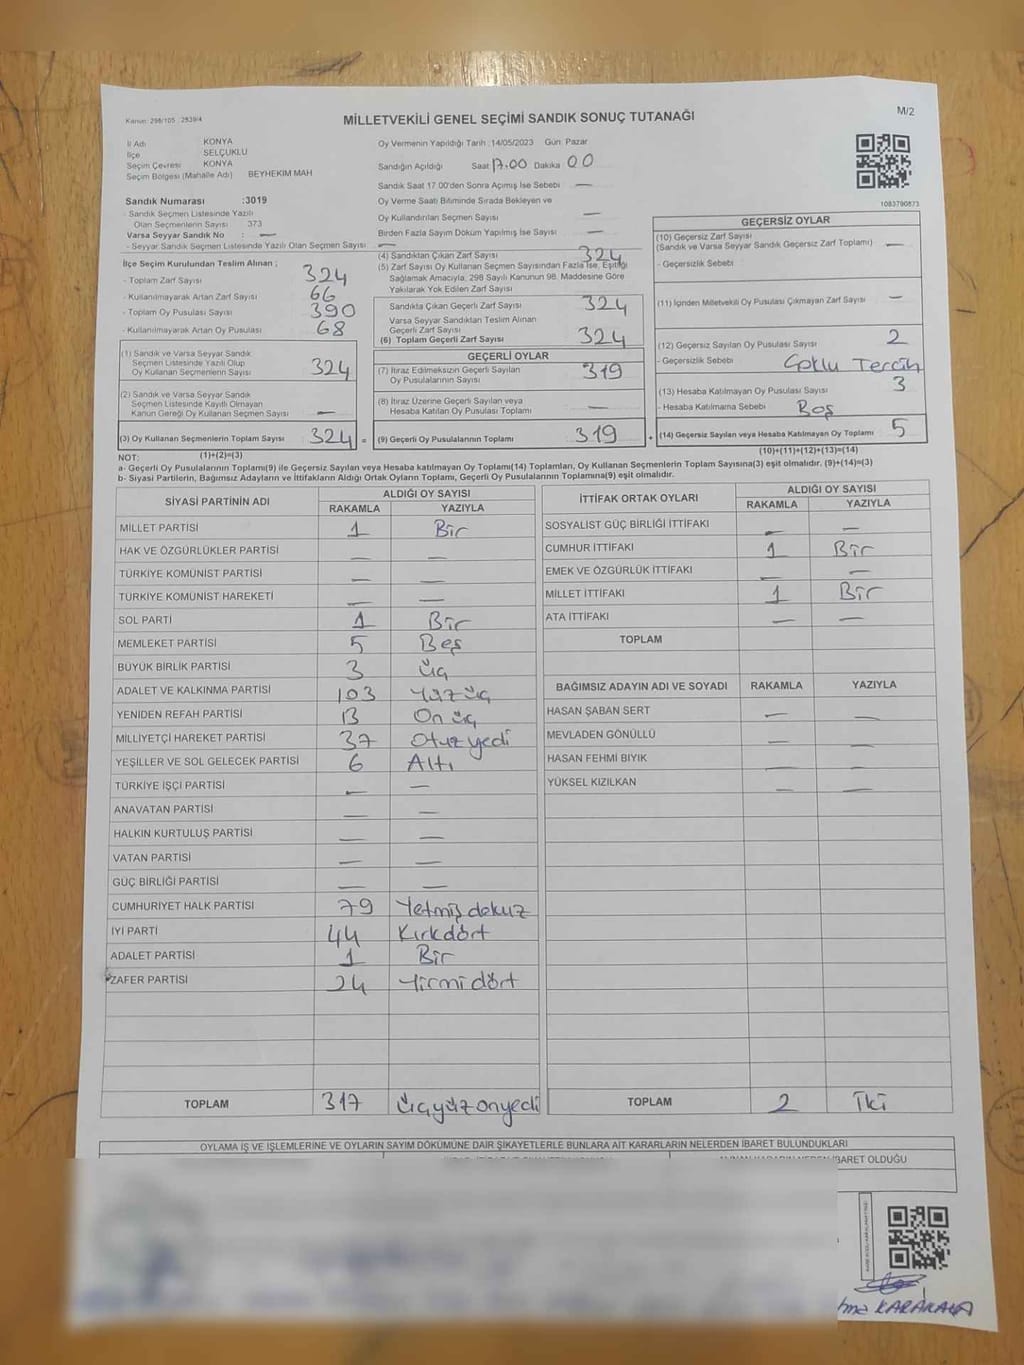 Kanun: 298/105 : 2839/4
MİLLETVEKİLİ GENEL SEÇİMİ SANDIK SONUÇ TUTANAĞI
M/2
İl Adı KONYA
İlçe SELÇUKLU
Seçim Çevresi KONYA
Seçim Bölgesi (Mahalle Adı) BEYHEKIM MAH
Oy Vermenin Yapıldığı Tarih :14/05/2023 Gün: Pazar
Sandığın Açıldığı Saat 17.00 Dakika 00
Sandık Saat 17.00'den Sonra Açımış İse Sebebi —
Oy Verme Saati Bitiminde Sırada Bekleyen ve
Oy Kullandırılan Seçmen Sayısı —
Birden Fazla Sayım Döküm Yapılmış İse Sayısı —
1083790873
Sandık Numarası :3019
- Sandık Seçmen Listesinde Yazılı
Olan Seçmenlerin Sayısı 373
Varsa Seyyar Sandık No : —
- Seyyar Sandık Seçmen Listesinde Yazılı Olan Seçmen Sayısı —
İlçe Seçim Kurulundan Teslim Alınan ;
- Toplam Zarf Sayısı 324
- Kullanılmayarak Artan Zarf Sayısı 66
- Toplam Oy Pusulası 390
- Kullanılmayarak Artan Oy Pusulası 68
(1) Sandık ve Varsa Seyyar Sandık
Seçmen Listesinde Yazılı Olup
Oy Kullanan Seçmenlerin Sayısı 324
(2) Sandık ve Varsa Seyyar Sandık
Seçmen Listesinde Kayıtlı Olmayan
Kanun Gereği Oy Kullanan Seçmen Sayısı —
(3) Oy Kullanan Seçmenlerin Toplam Sayısı 324 =
(4) Sandıktan Çıkan Zarf Sayısı 324
(5) Zarf Sayısı Oy Kullanan Seçmen Sayısından Fazla İse, Eşitliği
Sağlamak Amacıyla, 298 Sayılı Kanunun 98. Maddesine Göre
Yakılarak Yok Edilen Zarf Sayısı
Sandıkta Çıkan Geçerli Zarf Sayısı 324
Varsa Seyyar Sandıktan Teslim Alınan
Geçerli Zarf Sayısı
(6) Toplam Geçerli Zarf Sayısı 324
GEÇERLİ OYLAR
(7) İtiraz Edilmeksizin Geçerli Sayılan
Oy Pusulalarının Sayısı 319
(8) İtiraz Üzerine Geçerli Sayılan veya
Hesaba Katılan Oy Pusulası Toplamı —
(9) Geçerli Oy Pusulalarının Toplamı 319 +
GEÇERSİZ OYLAR
(10) Geçersiz Zarf Sayısı
(Sandık ve Varsa Seyyar Sandık Geçersiz Zarf Toplamı) —
- Geçersizlik Sebebi
(11) İçinden Milletvekili Oy Pusulası Çıkmayan Zarf Sayısı —
(12) Geçersiz Sayılan Oy Pusulası Sayısı 2
- Geçersizlik Sebebi Çoklu Tercih
(13) Hesaba Katılmayan Oy Pusulası Sayısı 3
- Hesaba Katılmama Sebebi Boş
(14) Geçersiz Sayılan veya Hesaba Katılmayan Oy Toplamı 5
NOT: (1)+(2)=(3) (10)+(11)+(12)+(13)=(14)
a- Geçerli Oy Pusulalarının Toplamı(9) ile Geçersiz Sayılan veya Hesaba katılmayan Oy Toplamı(14) Toplamları, Oy Kullanan Seçmenlerin Toplam Sayısına(3) eşit olmalıdır. (9)+(14)=(3)
b- Siyasi Partilerin, Bağımsız Adayların ve İttifakların Aldığı Ortak Oyların Toplamı, Geçerli Oy Pusulalarının Toplamına(9) eşit olmalıdır.
SİYASİ PARTİNİN ADI ALDIĞI OY SAYISI
RAKAMLA YAZIYLA
MİLLET PARTİSİ 1 Bir
HAK VE ÖZGÜRLÜKLER PARTİSİ — —
TÜRKİYE KOMÜNİST PARTİSİ — —
TÜRKİYE KOMÜNİST HAREKETİ — —
SOL PARTİ 1 Bir
MEMLEKET PARTİSİ 5 Beş
BÜYÜK BİRLİK PARTİSİ 3 Üç
ADALET VE KALKINMA PARTİSİ 103 Yüz üç
YENİDEN REFAH PARTİSİ 13 On üç
MİLLİYETÇİ HAREKET PARTİSİ 37 Otuz yedi
YEŞİLLER VE SOL GELECEK PARTİSİ 6 Altı
TÜRKİYE İŞÇİ PARTİSİ — —
ANAVATAN PARTİSİ — —
HALKIN KURTULUŞ PARTİSİ — —
VATAN PARTİSİ — —
GÜÇ BİRLİĞİ PARTİSİ — —
CUMHURİYET HALK PARTİSİ 79 Yetmiş dokuz
İYİ PARTİ 44 Kırk dört
ADALET PARTİSİ 1 Bir
ZAFER PARTİSİ 24 Yirmi dört
TOPLAM 317 Üçyüz onyedi
İTTİFAK ORTAK OYLARI ALDIĞI OY SAYISI
RAKAMLA YAZIYLA
SOSYALİST GÜÇ BİRLİĞİ İTTİFAKI — —
CUMHUR İTTİFAKI 1 Bir
EMEK VE ÖZGÜRLÜK İTTİFAKI — —
MİLLET İTTİFAKI 1 Bir
ATA İTTİFAKI — —
TOPLAM
BAĞIMSIZ ADAYIN ADI VE SOYADI RAKAMLA YAZIYLA
HASAN ŞABAN SERT — —
MEVLADEN GÖNÜLLÜ — —
HASAN FEHMİ BIYIK — —
YÜKSEL KIZILKAN — —
TOPLAM 2 İki
OYLAMA İŞ VE İŞLEMLERİNE VE OYLARIN SAYIM DÖKÜMÜNE DAİR ŞİKAYETLERLE BUNLARA AİT KARARLARIN NELERDEN İBARET BULUNDUKLARI
İBARET OLDUĞU
KARAKAYA